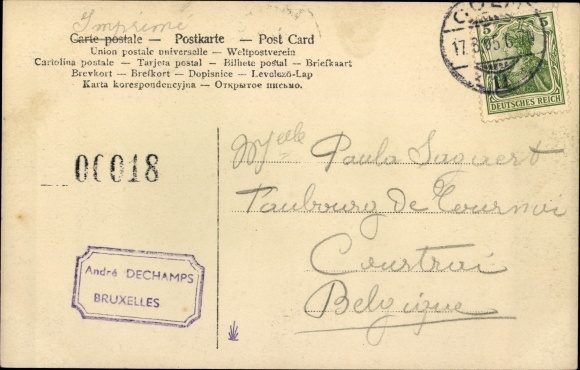 Imprimé
Carte postale — Postkarte — Post Card
Union postale universelle — Weltpostverein
Cartolina postale — Tarjeta postal — Bilhete postal — Briefkaart
Brevkort — Brefkort — Dopisnice — Levelező-Lap
Karta korespondencyjna — Открытое письмо.
5 5
17.6.05.6
DEUTSCHES REICH
00018
Mselle Paula
Faubourg de Tournai
Courtrai
Belgique
André DECHAMPS
BRUXELLES